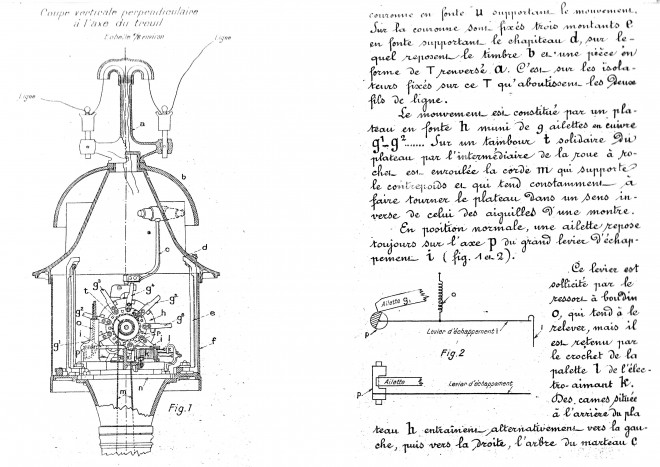 Coupe verticale perpendiculaire
à l'axe du treuil
Ligne
Ligne
a
b
a
c
d
e
f
g¹
g²
g³
t
h
g⁹
o
p
i
l
k
m
n
Fig.1
couronne en fonte u supportant le mouvement.
Sur la couronne sont fixés trois montants e
en fonte supportant le chapiteau d, sur le-
quel reposent le timbre b et une pièce en
forme de T renversé a. C'est sur les isola-
teurs fixés sur ce T qu'aboutissent les deux
fils de ligne.
Le mouvement est constitué par un pla-
teau en fonte h muni de 9 ailettes en cuivre
g¹-g²...... Sur un tambour t solidaire du
plateau par l'intermédiaire de la roue à ro-
chet est enroulée la corde m qui supporte
le contrepoids et qui tend constamment à
faire tourner le plateau dans un sens in-
verse de celui des aiguilles d'une montre.
En position normale, une ailette repose
toujours sur l'axe p du grand levier d'échap-
pement i (fig. 1 et 2).
Ce levier est
sollicité par le
ressort à boudin
o, qui tend à le
relever, mais il
est retenu par
le crochet de la
palette l de l'élec-
tro-aimant k.
Des cames situées
à l'arrière du pla
teau h entraînent alternativement vers la gau-
che, puis vers la droite, l'arbre du marteau c
Ailette g₁
o
p
Levier d'échappement i
l
Fig.2
Ailette
Levier d'échappement
p